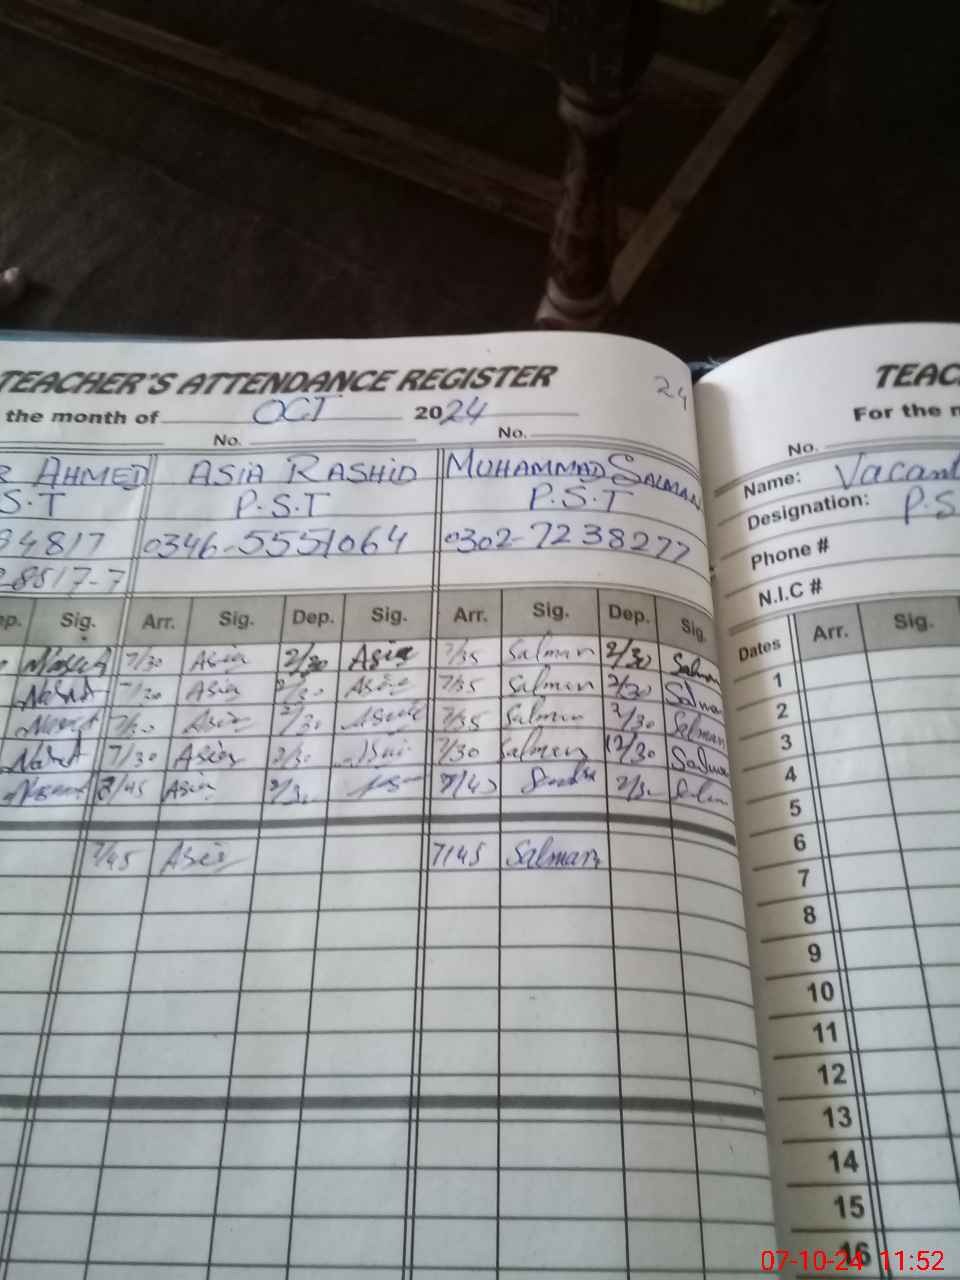 TEACHER'S ATTENDANCE REGISTER
24
the month of OCT 2024
No. No.
AHMED ASIA RASHID MUHAMMAD SALMAN
S.T P.S.T P.S.T
94817 0346-5551064 0302-7238277
8517-7
Sig. Arr. Sig. Dep. Sig. Arr. Sig. Dep. Sig.
7/30 Asia 2/30 Asia 7/35 Salman 2/30 Salman
7/30 Asia 2/30 Asia 7/35 Salman 2/30 Salman
7/30 Asia 2/30 7/35 Salman 2/30 Salman
7/30 Asia 2/30 7/30 Salman 12/30 Salman
7/45 Asia 2/30 7/45 2/30
7/45 Asia 7/45 Salman
TEAC
For the
No.
Name: Vacant
Designation: P.S
Phone #
N.I.C #
Dates Arr. Sig.
1
2
3
4
5
6
7
8
9
10
11
12
13
14
15
16
07-10-24 11:52